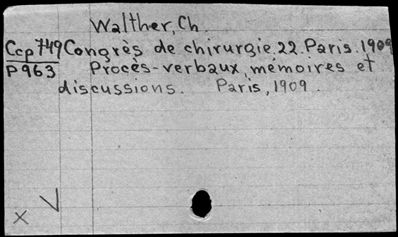 Walther, Ch.
Ccp749 Congrès de chirurgie. 22. Paris. 1909
P963 Procès-verbaux, mémoires et
discussions. Paris, 1909.